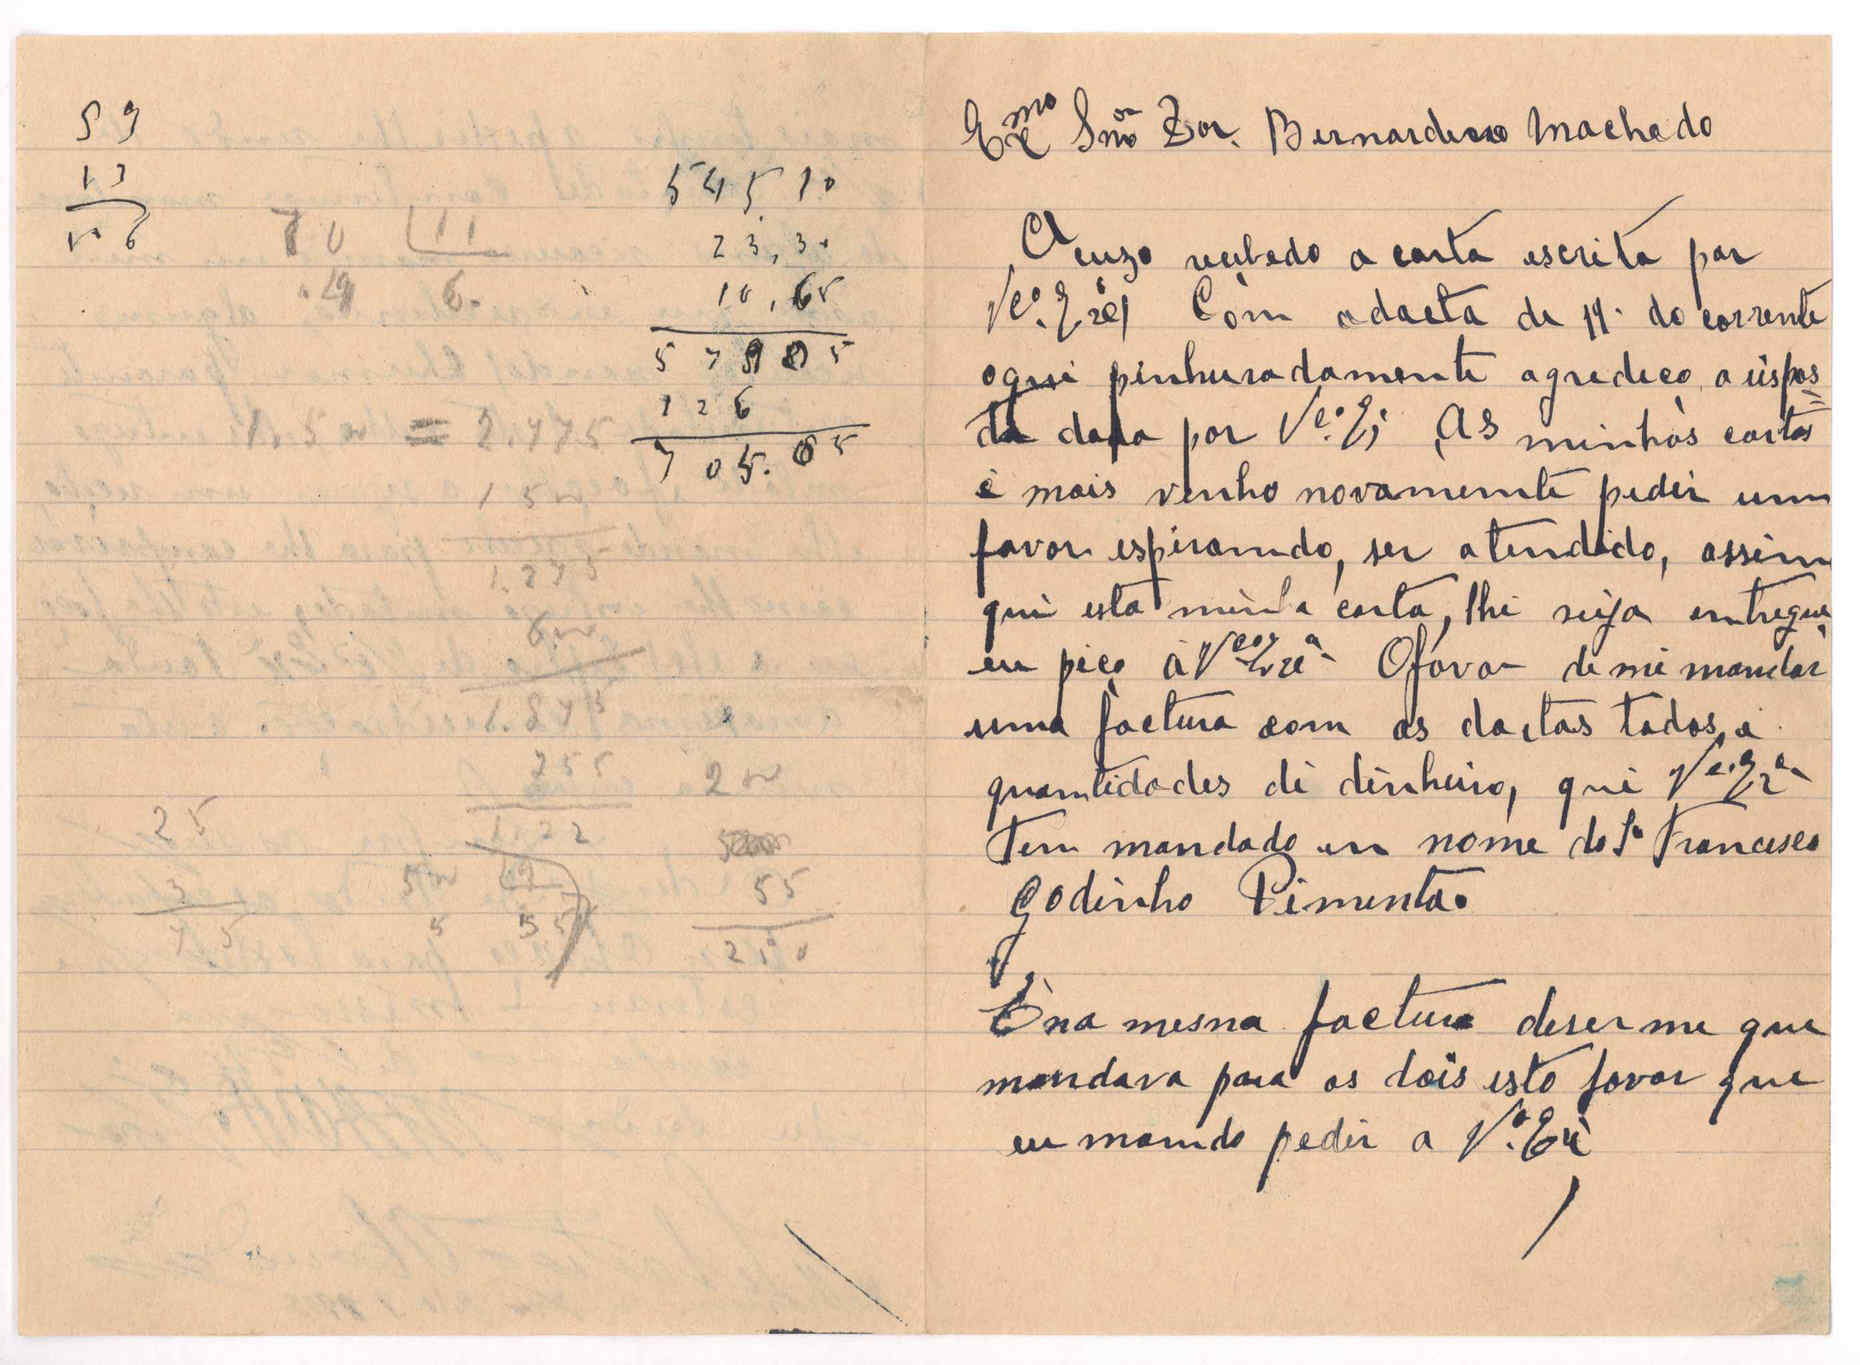 59
13
70 11
19 6.
545,10
23,30
10,65
5
126
705.65
1.500 = 2.775
1500
1.275
600
1.875
255
200
25
3
75
1.22
500
5 55
55
210
Exmo Snr Dor. Bernardino Machado
Acuzo recebedo a carta escrita por
Vca. Exca Com a dacta de 19. do corrente
o qui pinhuradamente agredeço a rispos=
da dada por Vca. Ex As minhas cartas
é mais venho novamemte pedir um
favor espiramdo, ser atendido, assim
qui esta minha carta, lhi sija entregue
eu peço à Vca Exca O favor de mi mandar
uma factura com as dactas todas, e
quamtidades di dinhiiro, qui Vca. Exca
Tem mandado em nome do Sr Francisco
Godinho Pimenta.
E na mesma factura deser me que
mandava para os dois isto favor que
eu mamdo pedir a Va. Exa